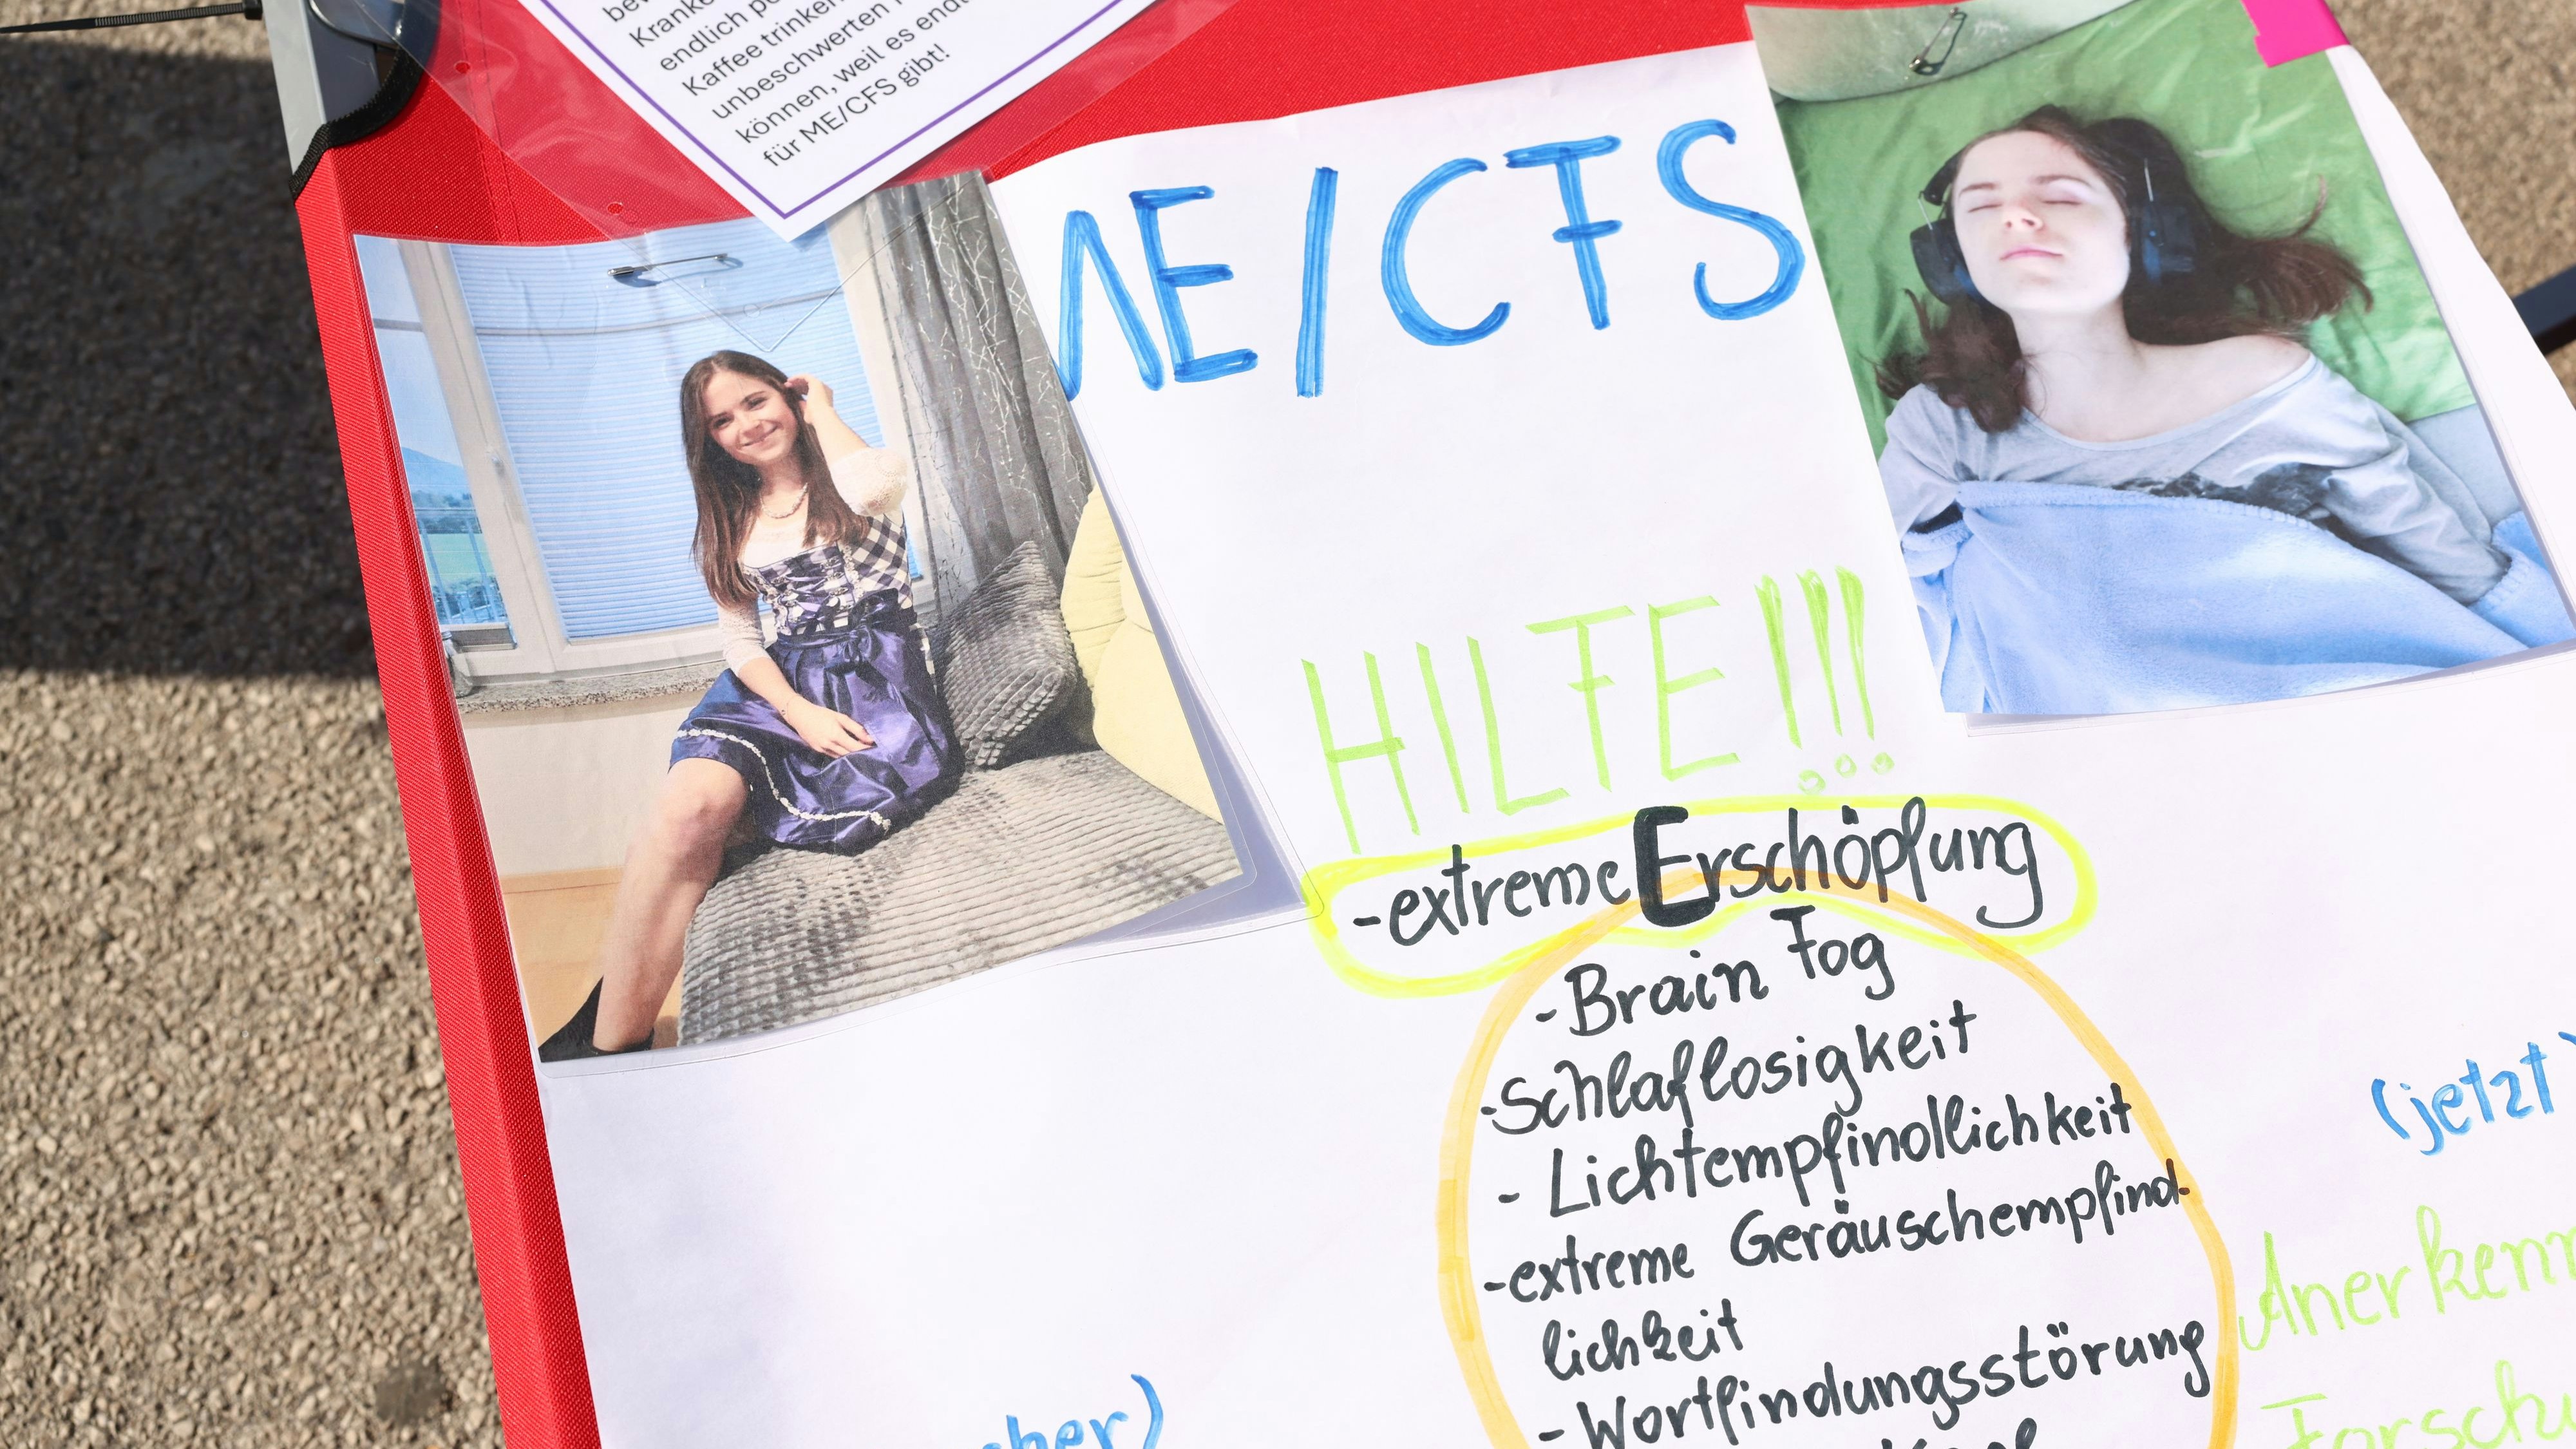 Kranke
endlich
Kaffee trinken
unbeschwerten
können, weil es
für ME/CFS gibt!
ME/CFS
HILFE!!!
-extreme Erschöpfung
-Brain Fog
-Schlaflosigkeit
- Lichtempfindlichkeit
-extreme Geräuschempfind-
lichkeit
- Wortfindungsstörung
(jetzt)
Anerkenn
Forschu
cher)